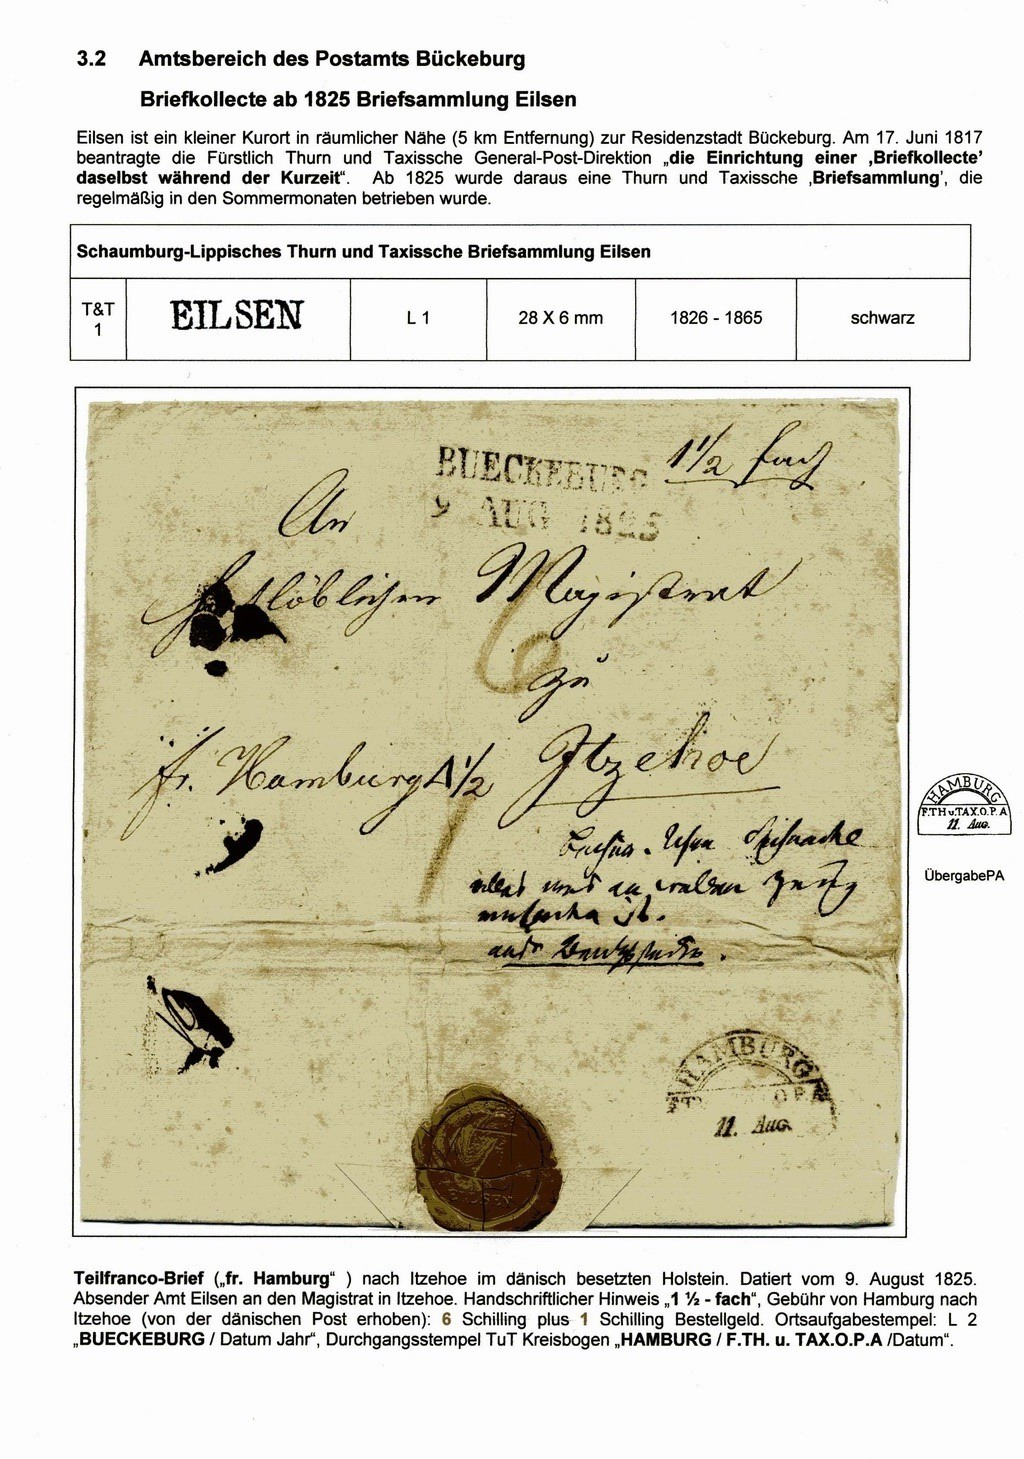 3.2 Amtsbereich des Postamts Bückeburg
Briefkollecte ab 1825 Briefsammlung Eilsen
Eilsen ist ein kleiner Kurort in räumlicher Nähe (5 km Entfernung) zur Residenzstadt Bückeburg. Am 17. Juni 1817
beantragte die Fürstlich Thurn und Taxissche General-Post-Direktion „die Einrichtung einer ‚Briefkollecte'
daselbst während der Kurzeit“. Ab 1825 wurde daraus eine Thurn und Taxissche ‚Briefsammlung', die
regelmäßig in den Sommermonaten betrieben wurde.
Schaumburg-Lippisches Thurn und Taxissche Briefsammlung Eilsen
T&T 1 EILSEN L 1 28 X 6 mm 1826 - 1865 schwarz
BUECKEBURG
9 AUG 1825
1 1/2 fach
An
löblichen Magistrat
6
zu
fr. Hamburg 1 1/2 Itzehoe
1
HAMBURG
F.TH u.TAX.O.P.A
11. AUG.
ÜbergabePA
HAMBURG
O.P.A
11. AUG.
EILSEN
Teilfranco-Brief („fr. Hamburg“ ) nach Itzehoe im dänisch besetzten Holstein. Datiert vom 9. August 1825.
Absender Amt Eilsen an den Magistrat in Itzehoe. Handschriftlicher Hinweis „1 ½ - fach“, Gebühr von Hamburg nach
Itzehoe (von der dänischen Post erhoben): 6 Schilling plus 1 Schilling Bestellgeld. Ortsaufgabestempel: L 2
„BUECKEBURG / Datum Jahr“, Durchgangsstempel TuT Kreisbogen „HAMBURG / F.TH. u. TAX.O.P.A /Datum“.